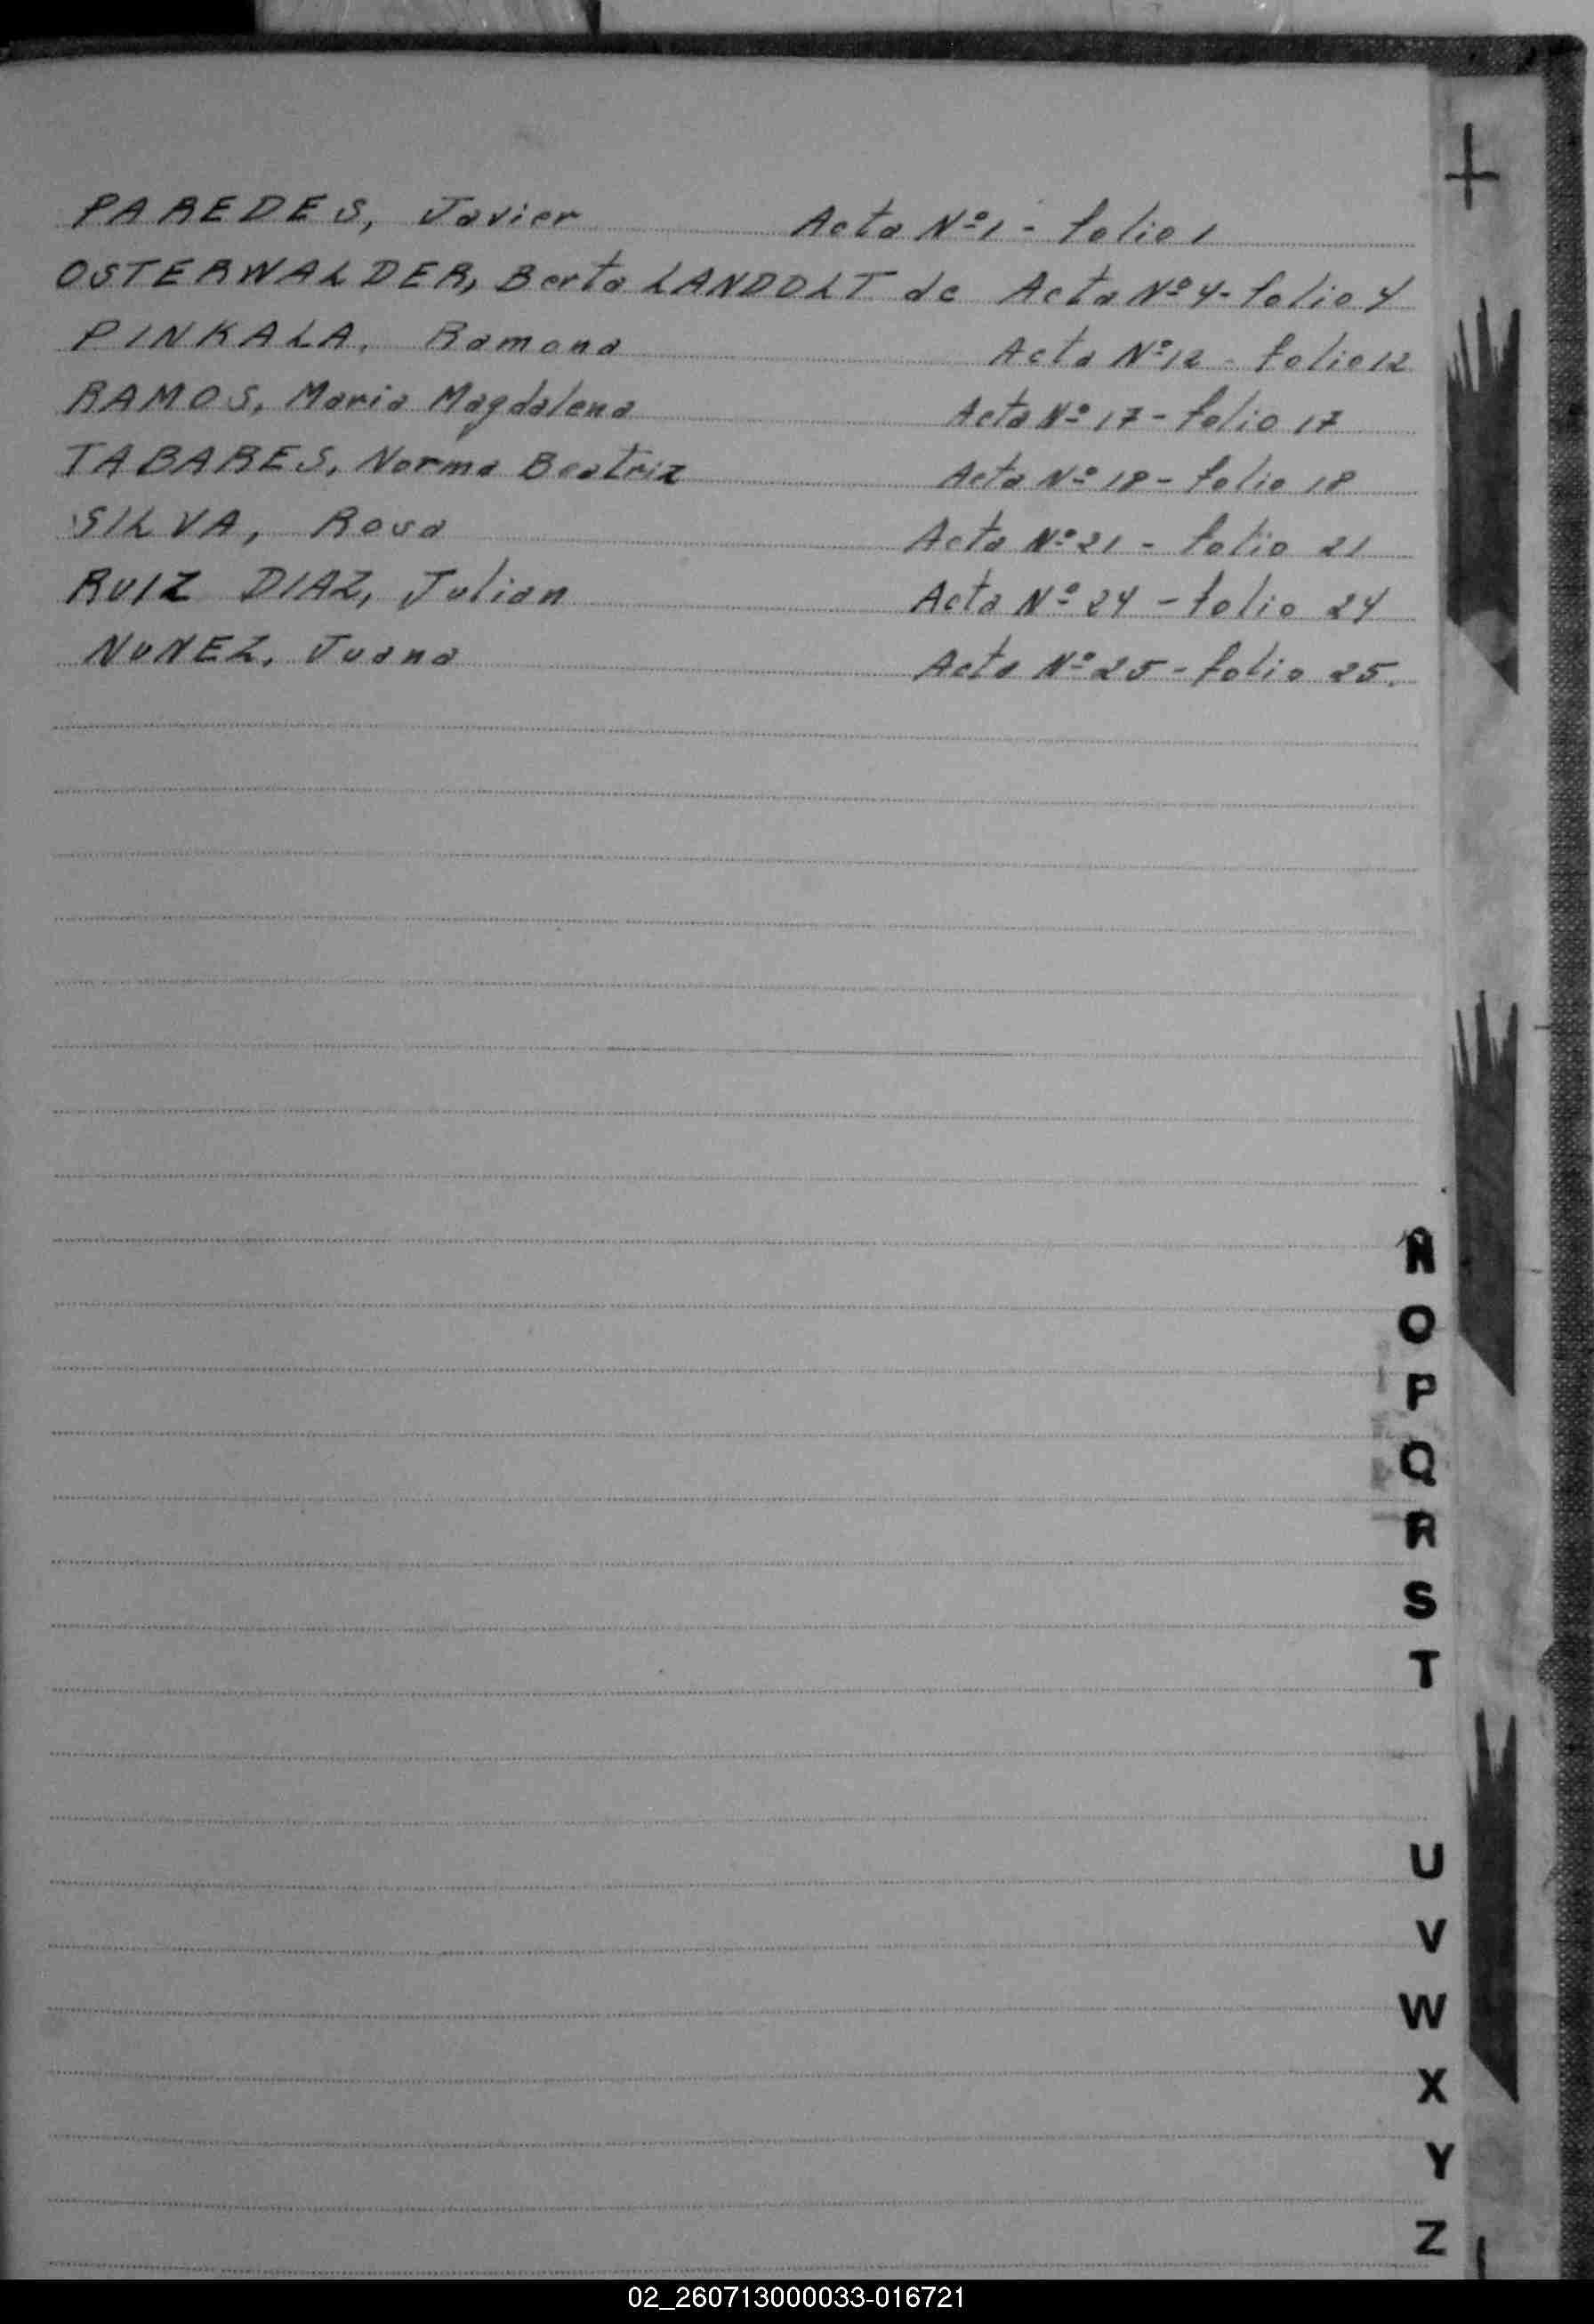 PAREDES, Javier Acta Nº1 - folio 1
OSTERWALDER, Berta LANDOLT de Acta Nº4- folio 4
PINKALA, Ramona Acta Nº12 - folio 12
RAMOS, Maria Magdalena Acta Nº 17 - folio 17
TABARES, Norma Beatriz Acta Nº 18 - folio 18
SILVA, Rosa Acta Nº21 - folio 21
RUIZ DIAZ, Julian Acta Nº 24 - folio 24
NUNEZ, Juana Acta Nº25 - folio 25.
Ñ
O
P
Q
R
S
T
U
V
W
X
Y
Z
02_260713000033-016721